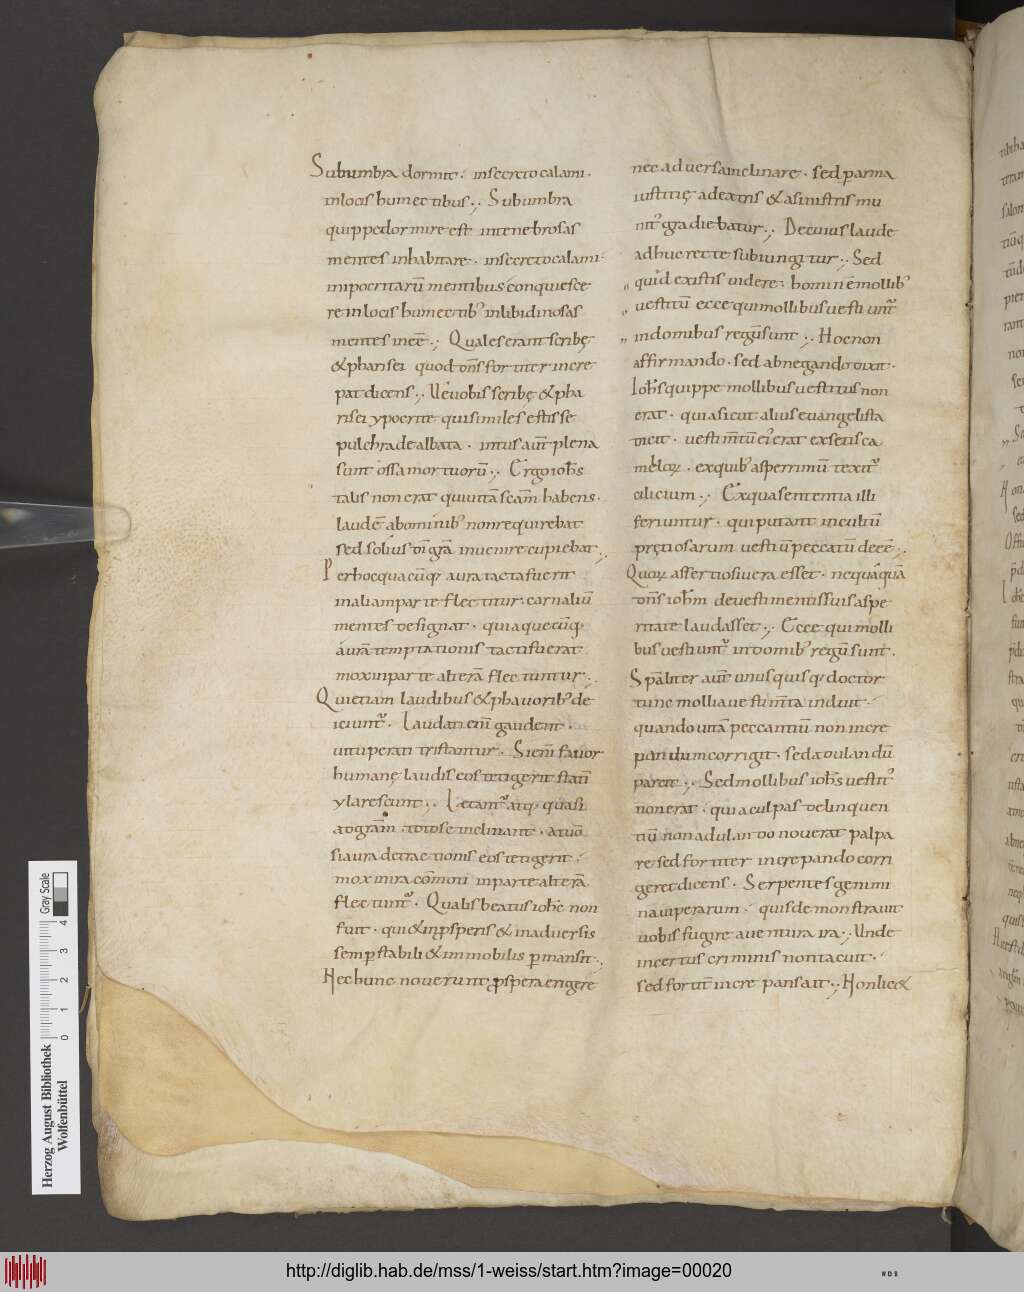 Subumbra dormit. insecreto calami.
inlocis humectibus., Subumbra
quippe dormire est intenebrosas
mentes inhabitare. insecreto calami.
inipocritarū mentibus conquiesce
re inlocis humectibꝰ inlibidinosas
mentes ineē., Quales erant scribę
& pharisei quod dn̄s fortiter incre
pat dicens., Uę uobis scribę & pha
risei ypocrite qui similes estis se
pulchra dealbata. intus aūt plena
sunt ossa mortuorū., Ergo ioħs
talis non erat qui uitā scām habens.
laudē abominibꝰ non requirebat
sed solius dī grā inuenire cupiebat.,
Per hoc quacūq; aura tacta fuerit
inaliam parte flectitur. carnaliū
mentes designat. qui aquecūq.
aurā temptationis tacti fuerat
mox inparte alterā flectuntur.,
Qui etiam laudibus & phauoribꝰ de
iciuntꝰ. Laudati enī gaudent.
uituperati tristantur. Si enī fauor
humanę laudis eos tetigerit statī
ylarescunt., Lętantꝰ atq; quasi
adgrām. toto se inclinant. at uō
si aura detractionis eos tetigerit.
mox inira cōmoti inparte alterā
flectuntꝰ. Qualis beatus iohē non
fuit. qui & inꝓsperis & inaduersis
semꝑ stabili & immobilis ꝑmansit.,
Nec hunc nouerunt ꝓspera erigere
nec aduersa inclinare. sed parma
iustitię adextris & asinistris mu
nitꝰ gradiebatur., De cuius laude
adhuc recte subiungitur., Sed
quid existis uidere. hominē mollibꝰ
uestitū ecce qui mollibus uestiuntꝰ
indomibus regū sunt., Hoc non
affirmando. sed abnegando dixit.
Ioħs quippe mollibus uestitus non
erat. quia sicut alius euangelista
dicit. uestimtū eiꝰ erat ex setis ca
meloꝝ. exquibꝰ asperrimū texitꝰ
cilicium., Exqua sententia illi
feriuntur. qui putant incultū
prętiosarum uestiū peccatū deeē.,
Quoꝝ assertio si uera esset. nequaquā
dn̄s ioħm deuestimenti suis aspe
ritate laudasset., Ecce qui molli
bus uestiuntꝰ indomibꝰ regū sunt.
Spāliter aūt unus quisq; doctor
tunc mollia uestimta induit.
quando uitā peccantiū non incre
pandum corrigit. sed adulandū
parcit., Sed mollibus ioħs uestitꝰ
non erat. quia culpas delinquen
tiū non adulando nouerat palpa
re sed fortiter increpando corri
geret dicens. Serpentes genimi
na uiperarum. quis demonstrauit
uobis fugire auentura ira., Unde
incertus criminis non tacuit.
sed fortit̄ increpansait., Non lic&
Herzog August Bibliothek
Wolfenbüttel
0 1 2 3 4
Gray Scale
http://diglib.hab.de/mss/1-weiss/start.htm?image=00020